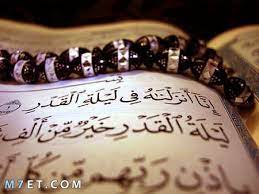 إِنَّا أَنزَلْنَٰهُ فِي لَيْلَةِ الْقَدْرِ
لَيْلَةُ الْقَدْرِ خَيْرٌ مِّنْ أَلْفِ
بِإِذْنِ رَبِّهِم
M7ET.COM